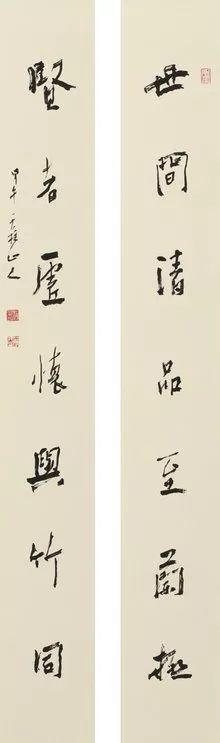 世間清品至蘭極
賢者虛懷與竹同
甲午